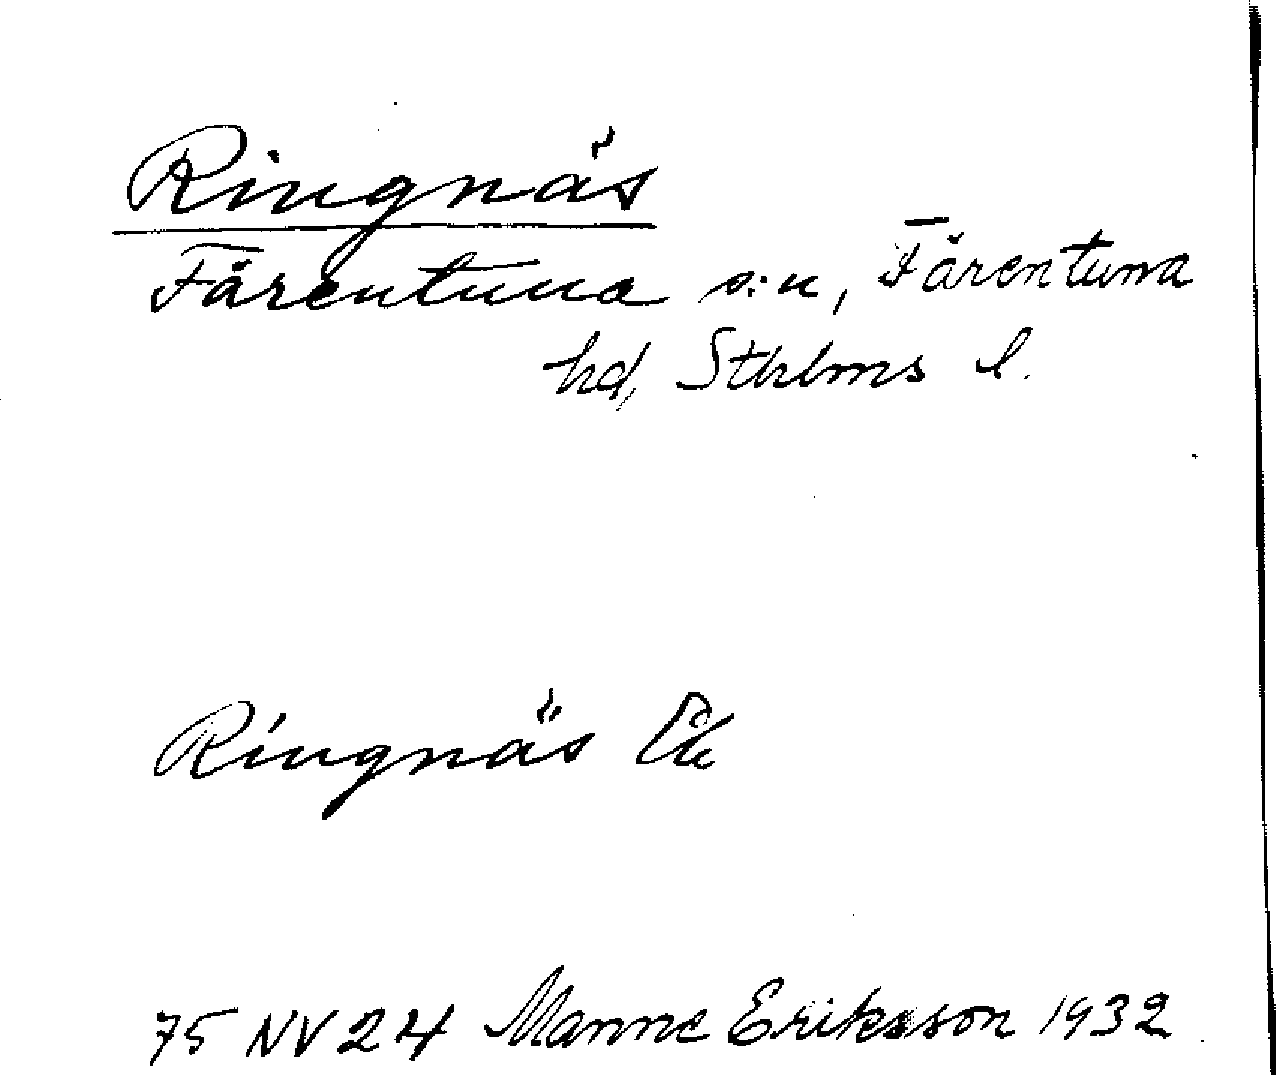 Ringnäs
Färentuna s:n, Färentuna
hd, Sthlms l.
Ringnäs Ek
75 NV 24 Manne Eriksson 1932